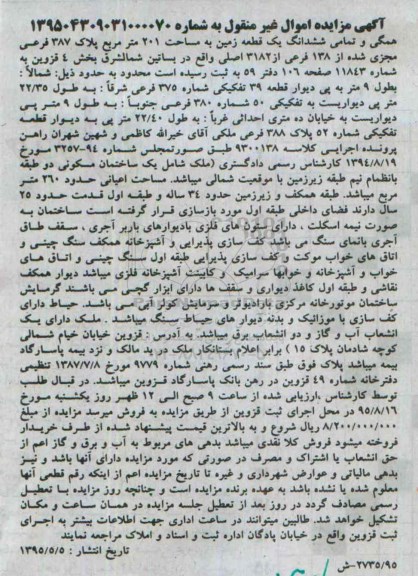 آگهی مزایده اموال غیر منقول به شماره ۱۳۹۵۰۴۳۰۹۰۳۱۰۰۰۰۷۰
همگی و تمامی ششدانگ یک قطعه زمین به مساحت ۲۰۱ متر مربع پلاک ۳۸۷ فرعی
مجزی شده از ۱۳۸ فرعی از۳۱۸۲ اصلی واقع در بساتین شمالشرق بخش ۴ قزوین به
شماره ۱۱۸۴۳ صفحه ۱۰۶ دفتر ۵۹ به ثبت رسیده است محدود به حدود ذیل: شمالاً :
بطول ۹ متر به پی دیوار قطعه ۳۹ تفکیکی شماره ۳۷۵ فرعی شرقاً : به طول ۲۲/۳۵
متر پی دیواریست به تفکیکی ۵۰ شماره ۳۸۰ فرعی جنوباً : به طول ۹ متر پی
دیواریست به خیابان ده متری احداثی غرباً : به طول ۲۲/۴۰ متر پی به دیوار قطعه
تفکیکی شماره ۵۲ پلاک ۳۸۸ فرعی ملکی آقای خیرالله کاظمی و شهین شهران راهن
پرونده اجرایی کلاسه ۹۳۰۰۱۳۸ طبق صورتمجلس شماره ۹۴-۳۲۵۷ مورخ
۱۳۹۴/۸/۱۹ کارشناس رسمی دادگستری (ملک شامل یک ساختمان مسکونی دو طبقه
بانظمام نیم طبقه زیرزمین با موقعیت شمالی میباشد. مساحت اعیانی حدود ۲۶۰ متر
مربع میباشد. طبقه همکف و زیرزمین حدود ۳۴ ساله و طبقه اول قدمت حدود ۲۵
سال دارند فضای داخلی طبقه اول مورد بازسازی قرار گرفته است ساختمان به
صورت نیمه اسکلت ، دارای ستون های فلزی بادیوارهای باربر آجری ، سقف طاق
آجری بانمای سنگ می باشد کف سازی پذیرایی و آشپزخانه همکف سنگ چینی و
اتاق های خواب موکت و کف سازی پذیرایی طبقه اول سنگ چینی و اتاق های
خواب و آشپزخانه و خوابها سرامیک و کابینت آشپزخانه فلزی میباشد دیوار همکف
نقاشی و طبقه اول کاغذ دیواری و سقف ها دارای ابزار گچی می باشند گرمایش
ساختمان موتورخانه مرکزی بارادیاتور و سرمایش کولر آبی می باشد. حیاط دارای
کف سازی با موزائیک و بدنه دیوار های حیاط سنگ میباشد . ملک دارای یک
انشعاب آب و گاز و دو انشعاب برق میباشد. به آدرس : قزوین خیابان خیام شمالی
کوچه شادمان پلاک ۱۵ ) برابر اعلام بستانکار ملک در ید مالک و نزد بیمه پاسارگاد
بیمه میباشد پلاک فوق طبق سند رسمی رهنی شماره ۹۷۷۹ مورخ ۱۳۸۷/۷/۸ تنظیمی
دفترخانه شماره ۴۹ قزوین در رهن بانک پاسارگاد قزوین میباشد. در قبال طلب
توسط کارشناس ارزیابی شده از ساعت ۹ صبح الی ۱۲ ظهر روز یکشنبه مورخ
۹۵/۸/۱۶ در محل اجرای ثبت قزوین از طریق مزایده به فروش میرسد مزایده از مبلغ
۸/۲۰۰/۰۰۰/۰۰۰ ریال شروع و به بالاترین قیمت پیشنهاد شده از طرف خریدار
فروخته میشود فروش کلا نقدی میباشد بدهی های مربوط به آب و برق و گاز اعم از
حق انشعاب یا اشتراک و مصرف در صورتی که مورد مزایده دارای آنها باشد و نیز
بدهی مالیاتی و عوارض شهرداری و غیره تا تاریخ مزایده اعم از اینکه رقم قطعی آنها
معلوم شده یا نشده باشد به عهده برنده مزایده است و چنانچه روز مزایده با تعطیل
رسمی مصادف گردد در روز بعد از تعطیل جلسه مزایده در همان ساعت و مکان
تشکیل خواهد شد. طالبین میتوانند در ساعت اداری جهت اطلاعات بیشتر به اجرای
ثبت قزوین واقع در خیابان پادگان اداره ثبت و اسناد و املاک مراجعه نمایند
تاریخ انتشار : ۱۳۹۵/۵/۵
۲۷۳۵/۹۵-ش